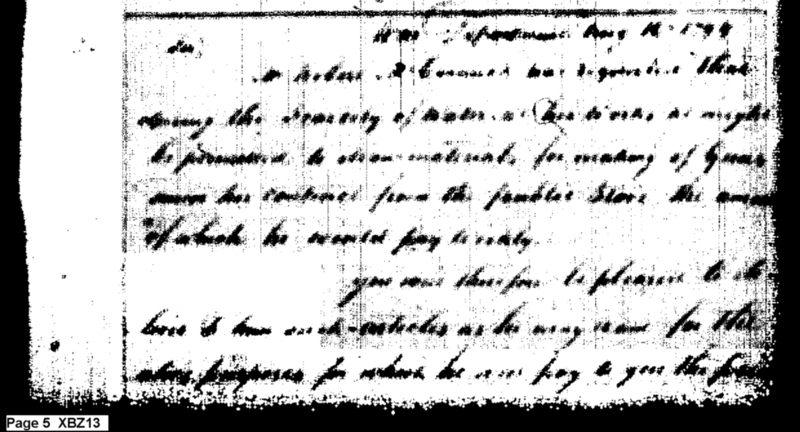 Sir, War Department Aug 16 1794
Mr Robert has requested that
during the scarcity of water at his works he might
be permitted to draw materials for making of Guns
under his contract from the public Store the amount
of which he would pay
you will therefore be pleased to de-
liver to him such articles as he may want for the
above purposes for which he will pay to you the
Page 5 XBZ13